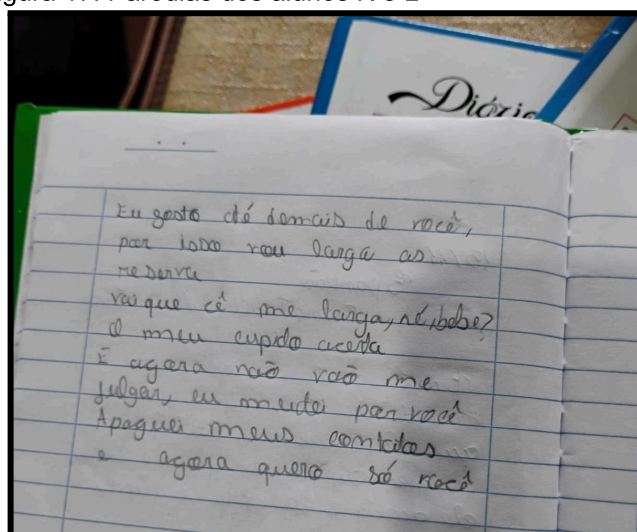 Diário
Eu gosto dé demais de você,
por isso vou larga as
reserva
vai que cê me larga, né, bebe?
O meu cupido acerta
E agora não vaõ me
julgar, eu mudei por você
Apaguei meus contatos
e agora quero só você